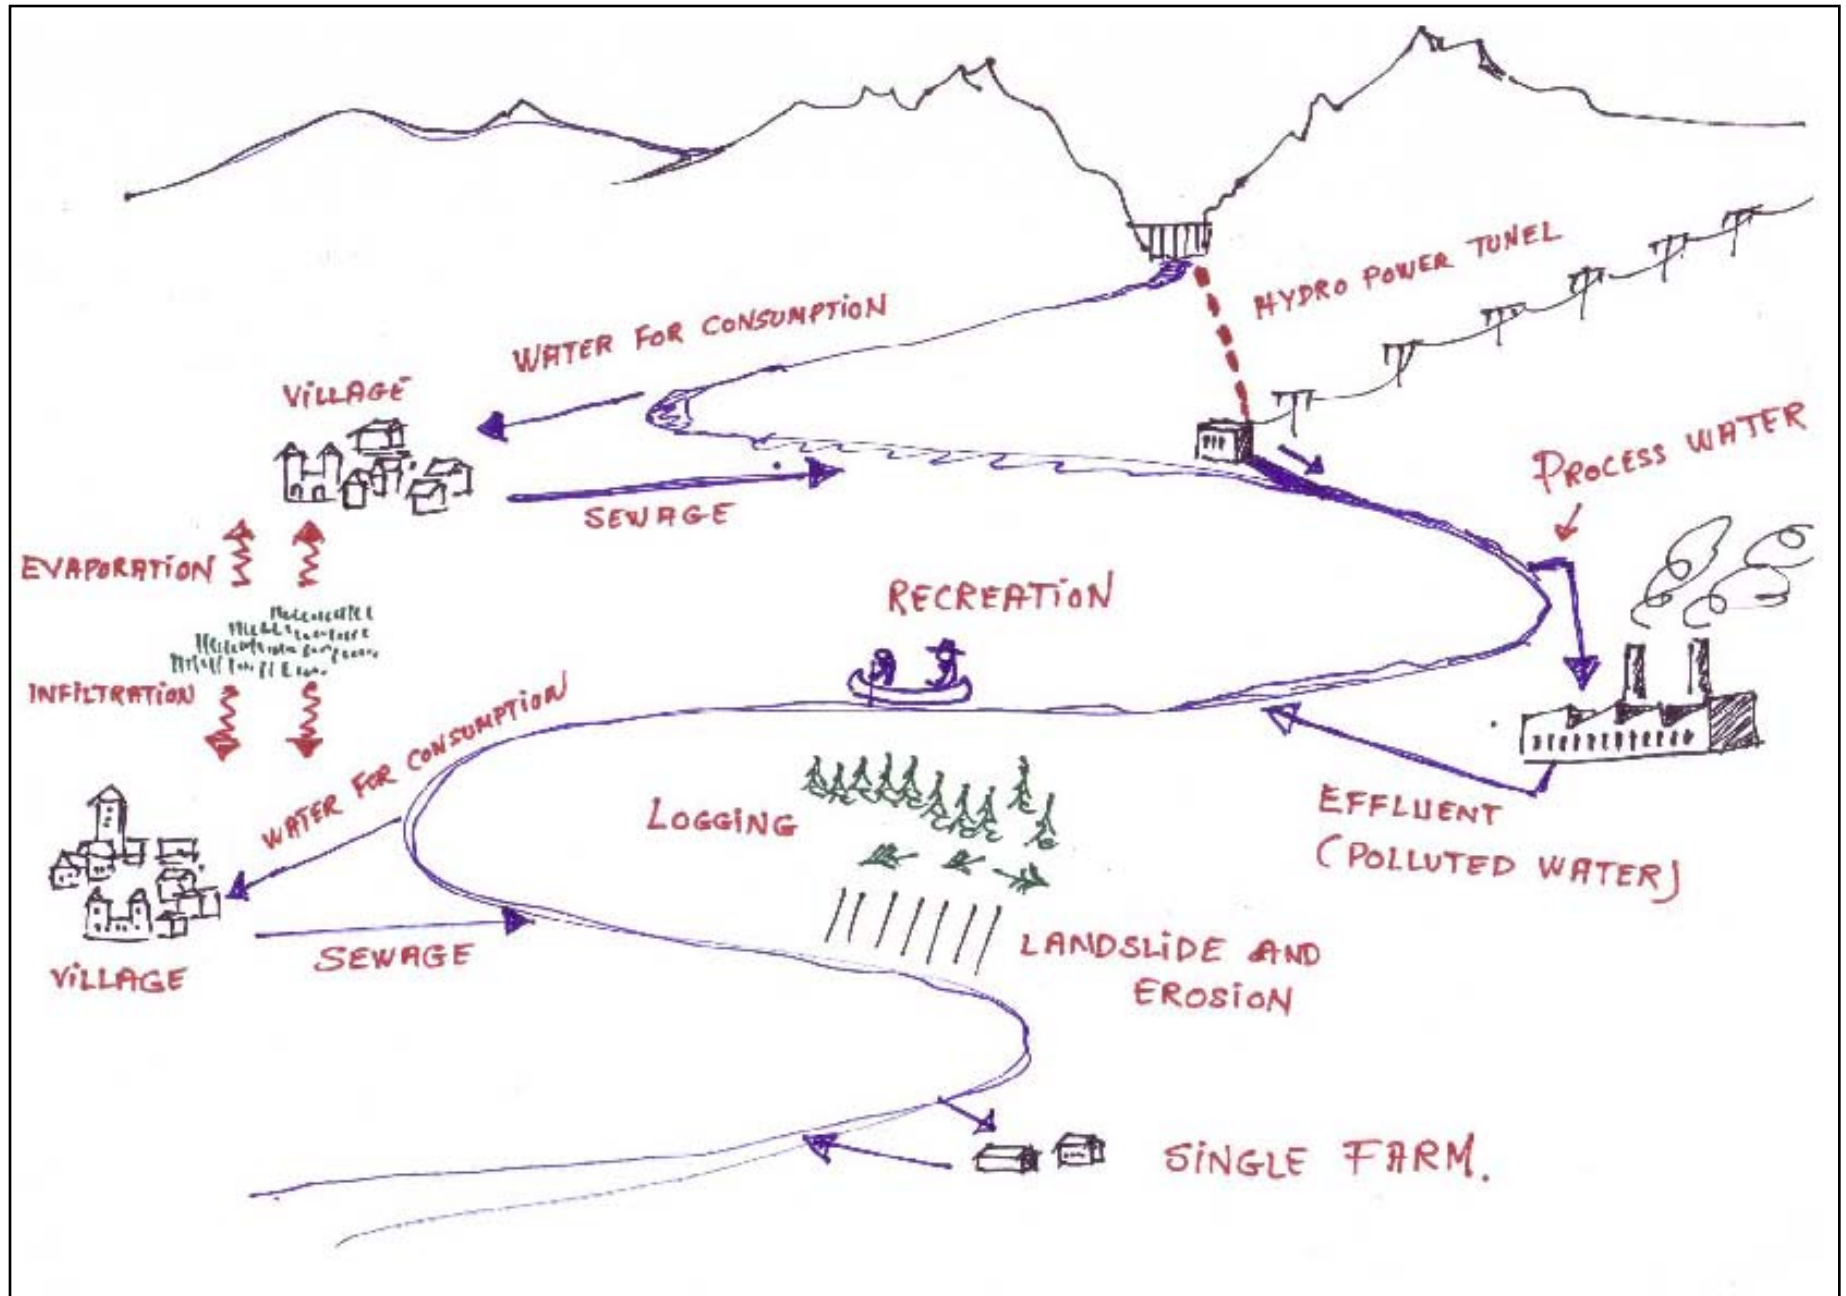 HYDRO POWER TUNEL
WATER FOR CONSUMPTION
VILLAGE
PROCESS WATER
SEWAGE
EVAPORATION
RECREATION
INFILTRATION
WATER FOR CONSUMPTION
LOGGING
EFFLUENT
(POLLUTED WATER)
LANDSLIDE AND
EROSION
SEWAGE
VILLAGE
SINGLE FARM.